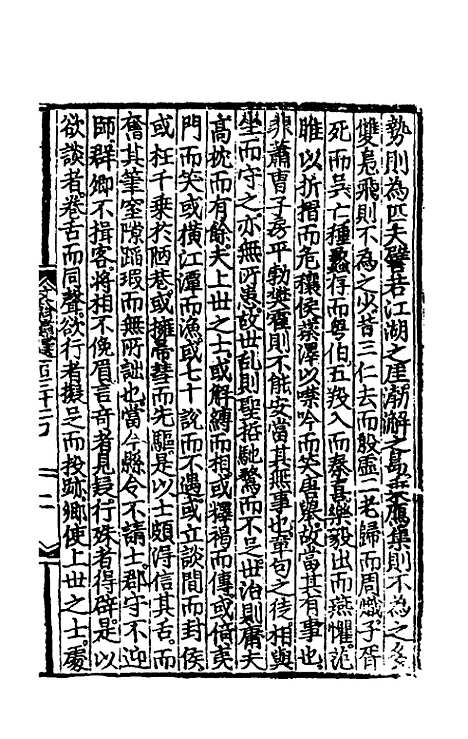 勢則為匹夫譬若江湖之崖渤澥之島乘鴈集則不為之多
雙鳧飛則不為之少昔三仁去而殷虛二老歸而周熾子胥
死而吳亡種蠡存而粵伯五羖入而秦喜樂毅出而燕懼范
雎以折摺而危穰侯蔡澤以噤吟而笑唐舉故當其有事也
非蕭曹子房平勃樊霍則不能安當其無事也章句之徒相與
坐而守之亦無所患故世亂則聖哲馳騖而不足世治則庸夫
高枕而有餘夫上世之士或解縛而相或釋褐而傅或倚夷
門而笑或橫江潭而漁或七十說而不遇或立談間而封侯
或枉千乘於陋巷或擁帚彗而先驅是以士頗得信其舌而
奮其筆窒隙蹈瑕而無所詘也當今縣令不請士郡守不迎
師群卿不揖客將相不俛眉言奇者見疑行殊者得辟是以
欲談者卷舌而同聲欲行者擬足而投跡鄉使上世之士處
二